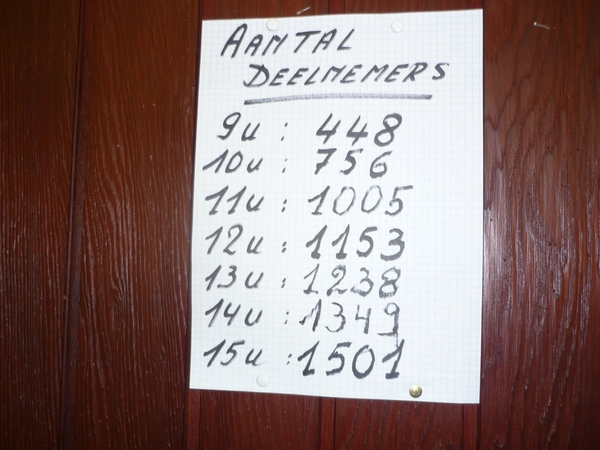 AANTAL
DEELNEMERS
9u : 448
10u : 756
11u : 1005
12u : 1153
13u : 1238
14u : 1349
15u : 1501